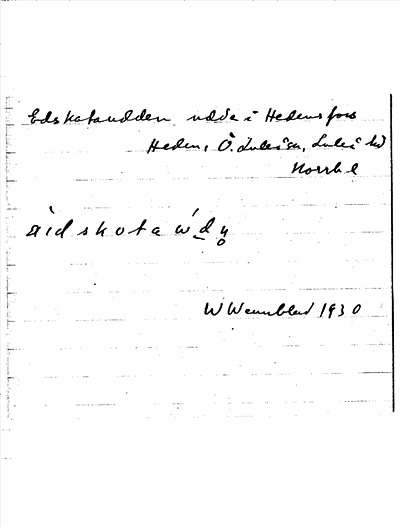 Edskataudden udde i Hedensfors
Heden, Ö. Luleå sn, Luleå hd
Norrb l
W Wennblad 1930